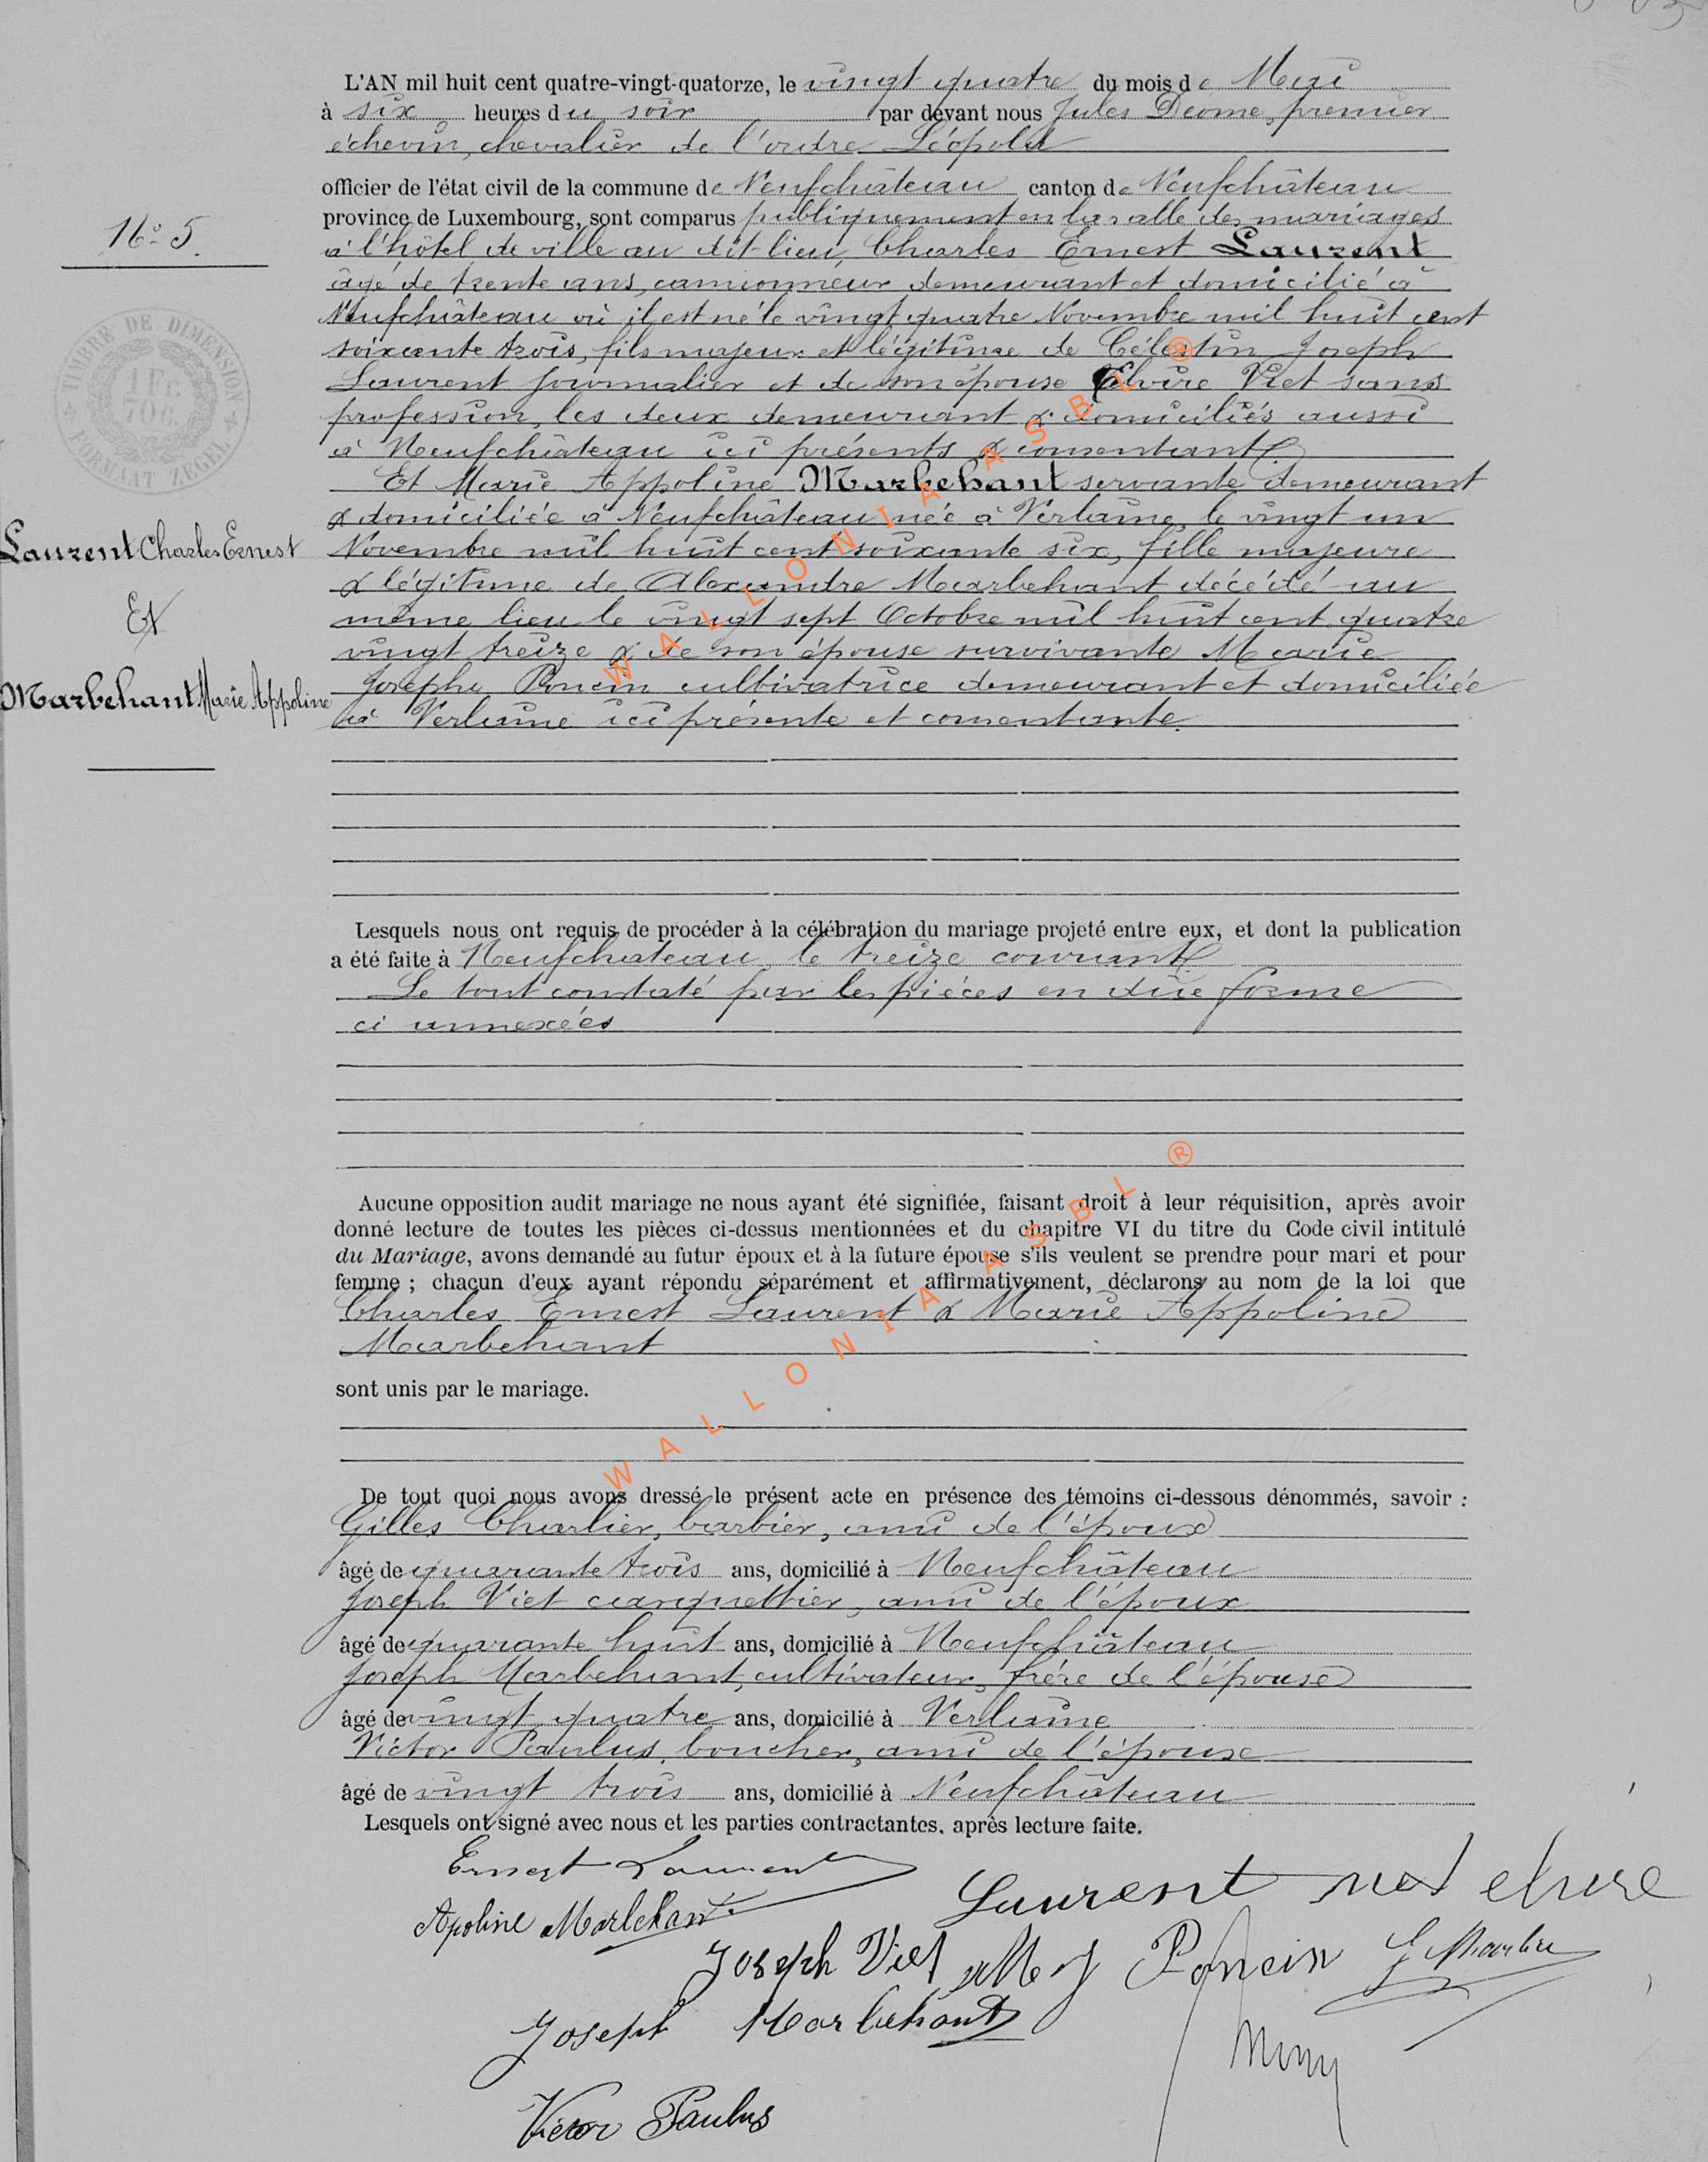 L'AN mil huit cent quatre-vingt-quatorze, le vingt quatre du mois de Mai
à six heures du soir par devant nous Jules Deome, premier
échevin, chevalier de l'ordre Léopold
officier de l'état civil de la commune de Neufchâteau canton de Neufchâteau
province de Luxembourg, sont comparus publiquement en la salle des mariages
à l'hôtel de ville au dit lieu, Charles Ernest Laurent
âgé de trente ans, camionneur demeurant et domicilié à
Neufchâteau où il est né le vingt quatre Novembre mil huit cent
soixante trois, fils majeur et légitime de Célestin Joseph
Laurent journalier et de son épouse Elvire Viet sans
profession, les deux demeurant & domiciliés aussi
à Neufchâteau ici présents & consentants
Et Marie Appoline Marbehant servante demeurant
& domiciliée à Neufchâteau née à Verlaine, le vingt un
Novembre mil huit cent soixante six, fille majeure
& légitime de Alexandre Marbehant décédé au
même lieu le vingt sept Octobre mil huit cent quatre
vingt treize & de son épouse survivante Marie
Josephe Poncin cultivatrice demeurant et domiciliée
à Verlaine ici présente et consentante.
No 5.
TIMBRE DE DIMENSION
1 Fr.
70 C.
FORMAAT ZEGEL
Laurent Charles Ernest
Et
Marbehant Marie Appoline
Lesquels nous ont requis de procéder à la célébration du mariage projeté entre eux, et dont la publication
a été faite à Neufchateau, le treize courant
Le tout constaté par les pièces en due forme
ci annexées
Aucune opposition audit mariage ne nous ayant été signifiée, faisant droit à leur réquisition, après avoir
donné lecture de toutes les pièces ci-dessus mentionnées et du chapitre VI du titre du Code civil intitulé
du Mariage, avons demandé au futur époux et à la future épouse s'ils veulent se prendre pour mari et pour
femme ; chacun d'eux ayant répondu séparément et affirmativement, déclarons au nom de la loi que
Charles Ernest Laurent & Marie Appoline
Marbehant
sont unis par le mariage.
De tout quoi nous avons dressé le présent acte en présence des témoins ci-dessous dénommés, savoir :
Gilles Charlier, barbier, ami de l'époux
âgé de quarante trois ans, domicilié à Neufchâteau
Joseph Viet, ami de l'époux
âgé de quarante huit ans, domicilié à Neufchâteau
Joseph Marbehant, cultivateur, frère de l'épouse
âgé de vingt quatre ans, domicilié à Verlaine
Victor Paulus, boucher, ami de l'épouse
âgé de vingt trois ans, domicilié à Neufchâteau
Lesquels ont signé avec nous et les parties contractantes, après lecture faite.
Ernest Laurent
Laurent
Apoline Marbehant
Joseph Viet M J Poncin G Charlier
Joseph Marbehant
Victor Paulus
WALLONIA ASBL ®
WALLONIA ASBL ®